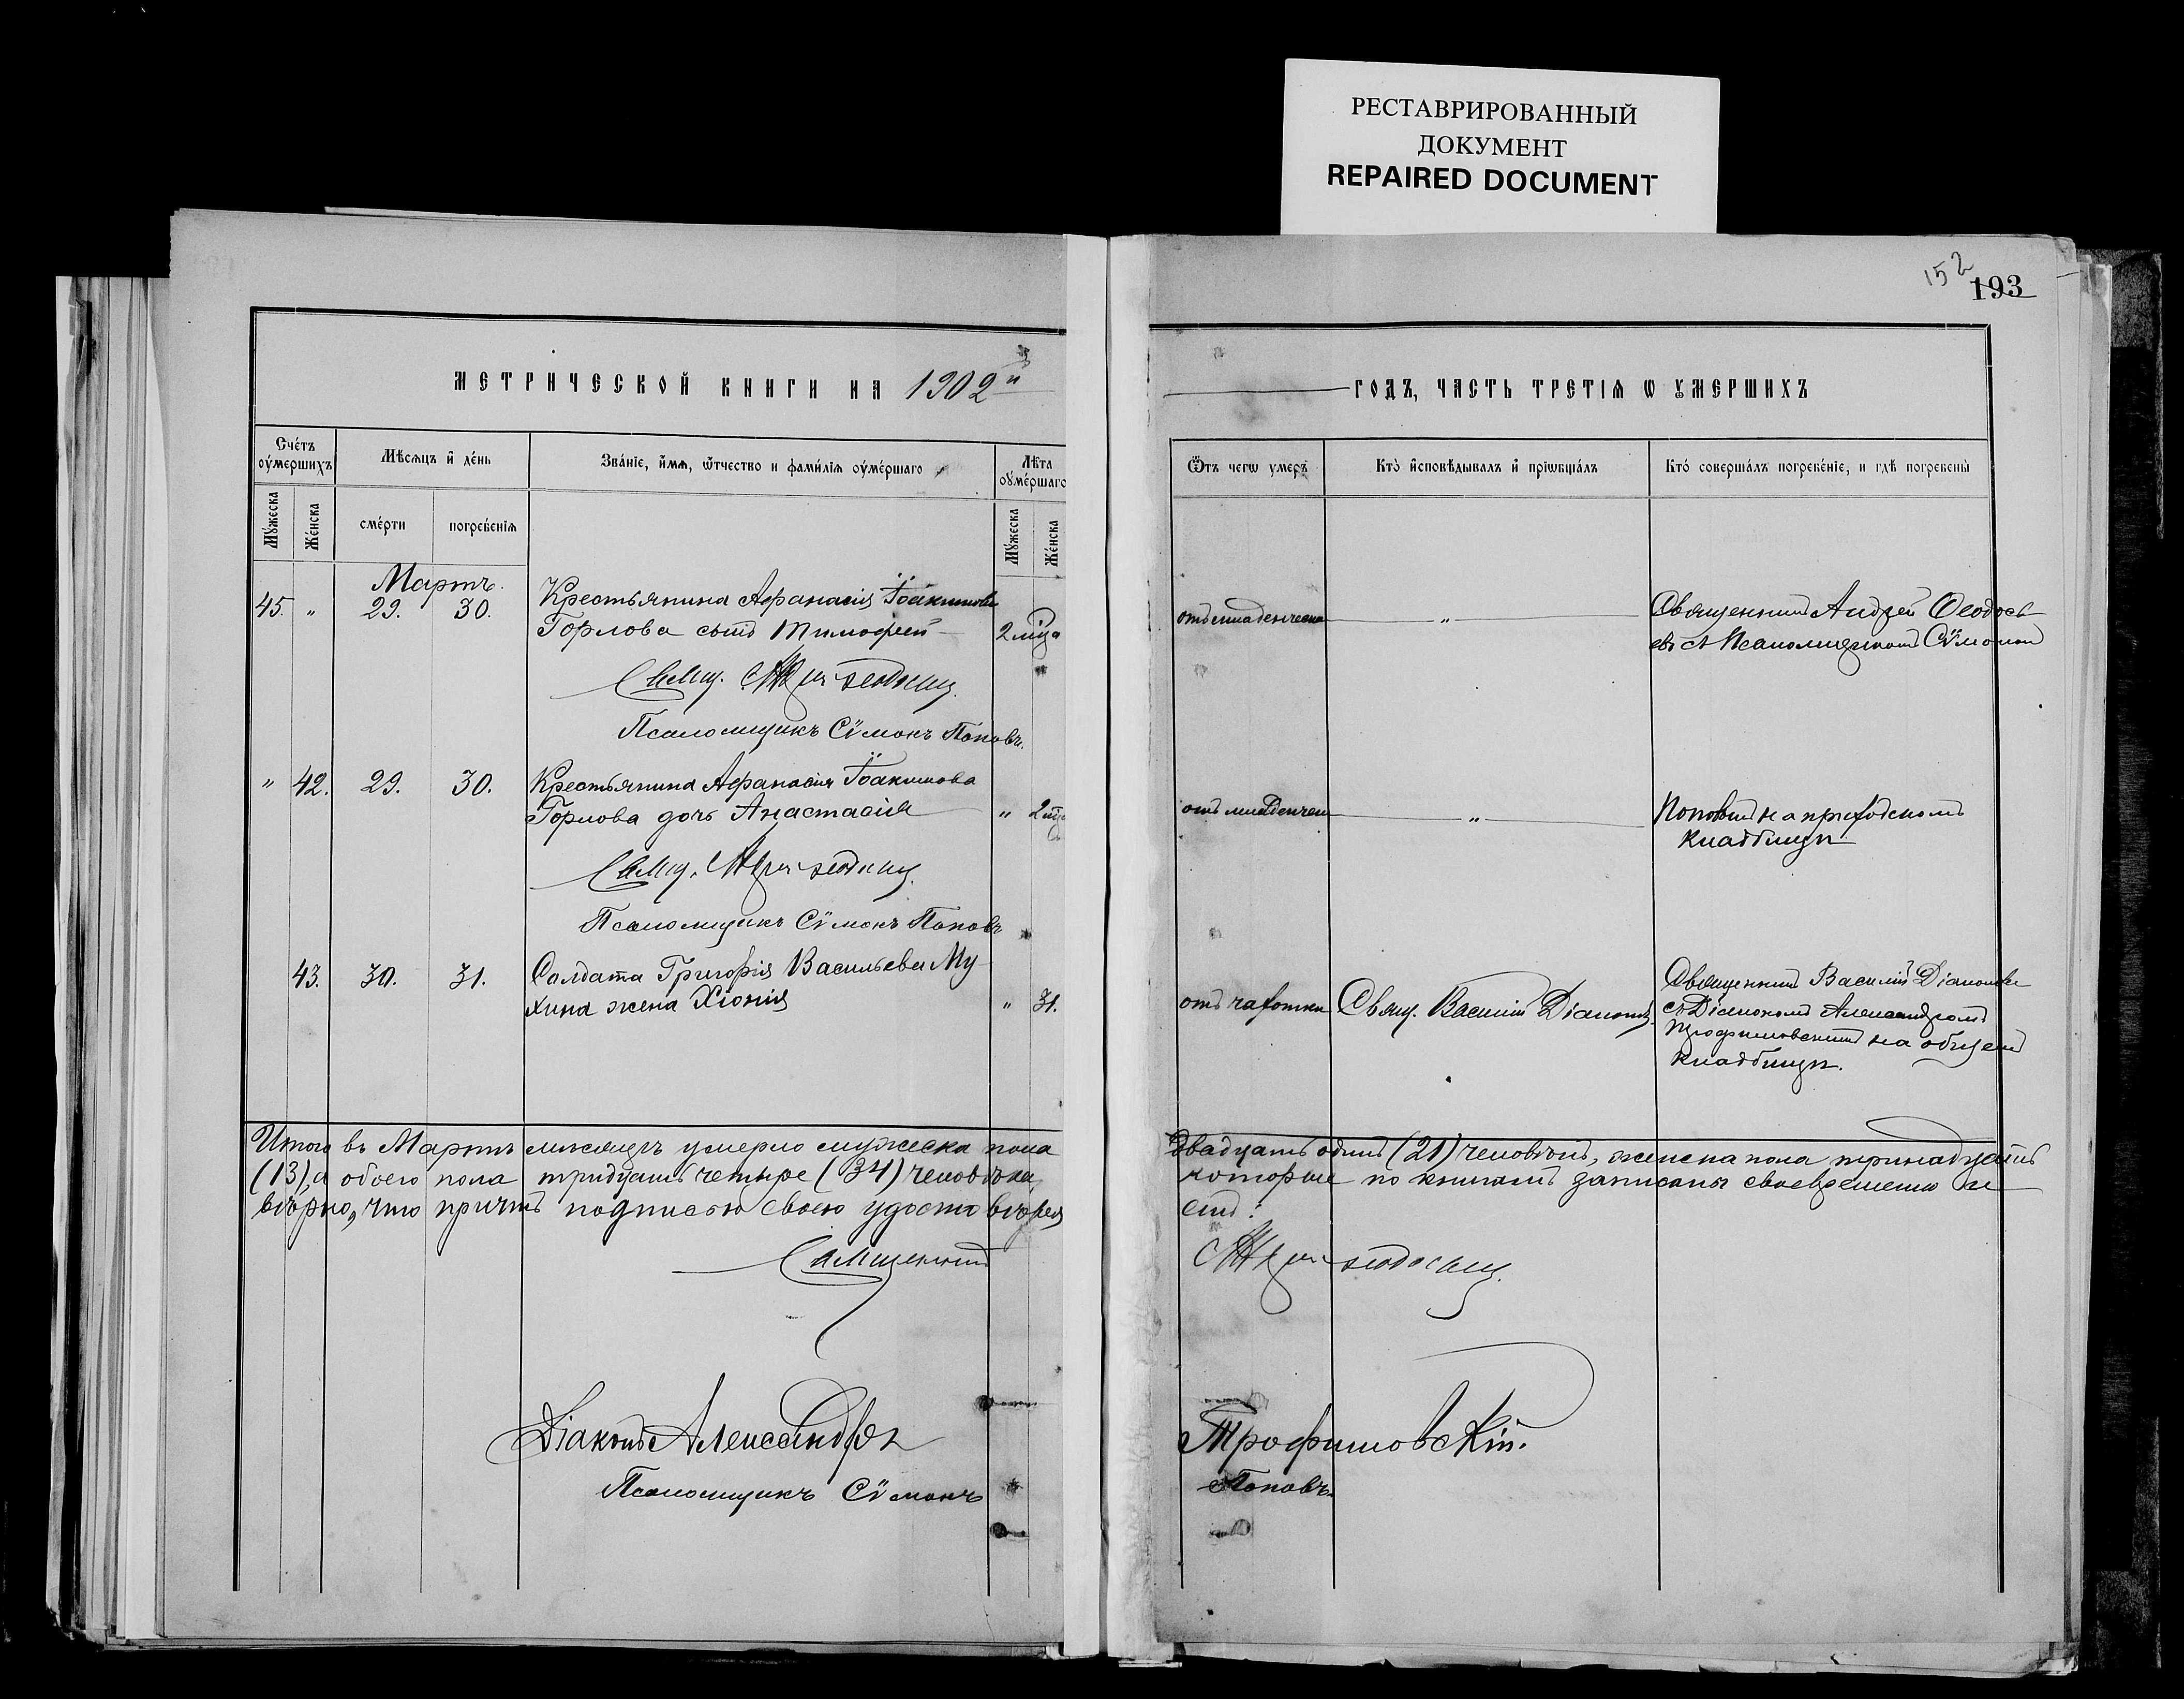 РЕСТАВРИРОВАННЫЙ
ДОКУМЕНТ
REPAIRED DOCUMENT
152
193
МЕТРИЧЕСКОЙ КНИГИ НА 1902й
ГОДЪ, ЧАСТЬ ТРЕТІЯ Ѡ ОУМЕРШИХЪ
Сче́тъ оу́мершихъ
Мѣсяцъ и де́нь
Зва́ніе, и́мя, ѿтчество и фами́лія оуме́ршаго
Лѣта оу́ме́ршаго
Му́жеска
Же́нска
сме́рти
погребе́нія
Му́жеска
Же́нска
Ѿтъ чегѡ умеръ
Кто̀ и҆сповѣ́дывалъ и҆ прїѡбща́лъ
Кто́ соверша́лъ погребе́ніе, и гдѣ погребены̀
Мартъ.
45. " 29. 30. Крестьянина Аѳанасія Іоакимова
Горлова сынъ Тимофей 2 м҃ца
Свящ. Андрей Ѳеодосьевъ
Псаломщикъ Сѵмонъ Поповъ.
отъ младенческа " Священникъ Андрей Ѳеодось
евъ съ Псаломщикомъ Сѵмономъ
" 42. 29. 30. Крестьянина Аѳанасія Іоакимова
Горлова дочь Анастасія " 2 м҃ца
Свящ. Андрей Ѳеодосьевъ
Псаломщикъ Сѵмонъ Поповъ
отъ младенчес " Поповымъ на приходскомъ
кладбищѣ
43. 30. 31. Солдата Григорія Васильева Му
хина жена Хіонія " 31.
отъ чахотки Свящ. Василій Діаконовъ.
Священникъ Василій Діаконовъ
съ Діакономъ Александромъ
Трофимовскимъ на общемъ
кладбищѣ.
Итого въ Мартѣ мѣсяцѣ умерло мужеска пола двадцать одинъ (21) человѣкъ, женска пола тринадцать
(13), а обоего пола тридцать четыре (34) человѣка, которые по книгамъ записаны своевременно и
вѣрно, что причтъ подписью своею удостовѣряетъ:
Священникъ Андрей Ѳеодосьевъ.
Діаконъ Александръ Трофимовскій.
Псаломщикъ Сѵмонъ Поповъ.